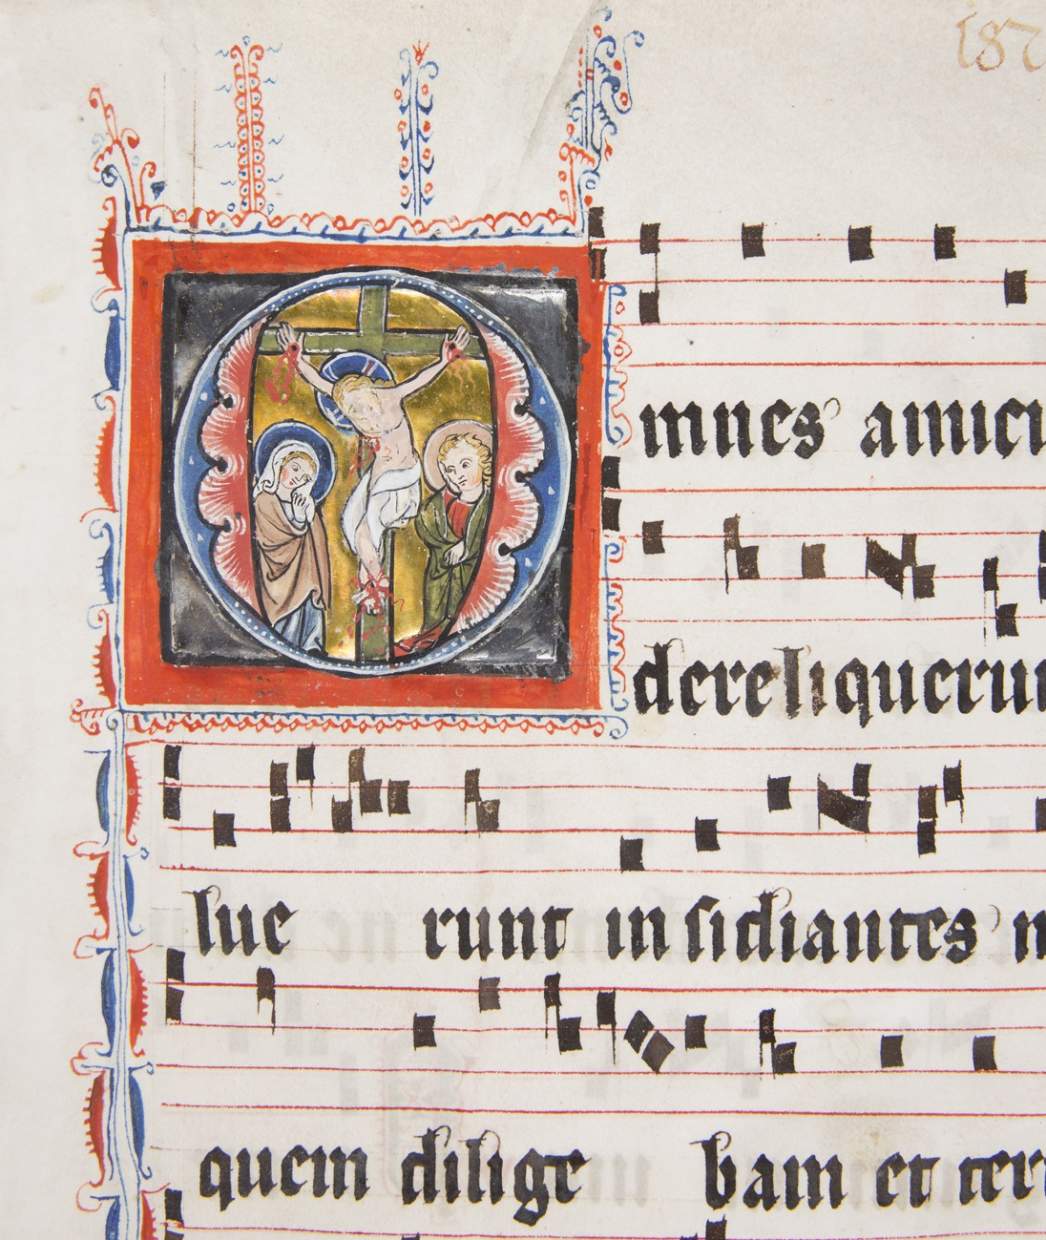 187
Omnes amici
dereliquerun
lue runt insidiantes m
quem dilige bam et terr